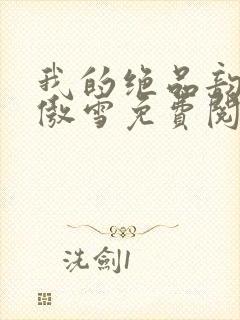 我的绝品
傲雪免費閱
洗劍1